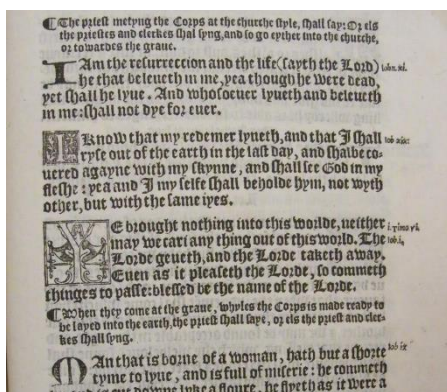 ¶The priest metyng the Corps at the churche style, shall say: Or els
the priestes and clerkes shal syng, and so go eyther into the churche,
or towardes the graue.
I Am the resurreccion and the life (sayth the Lord) John. xi.
he that beleueth in me, yea though he were dead,
yet shall he lyue. And whosoeuer lyueth and beleueth
in me: shall not dye for euer.
I Know that my redemer lyueth, and that I shall Iob xix.
ryse out of the earth in the last day, and shalbe co-
uered agayne with my skynne, and shall see God in my
fleshe: yea and I my selfe shall beholde hym, not wyth
other, but with the same iyes.
WE brought nothing into this worlde, neither i. Timo vi.
may we cari any thing out of this world. The Iob. i.
Lorde geueth, and the Lorde taketh away.
Euen as it pleaseth the Lorde, so commeth
thinges to passe: blessed be the name of the Lorde.
¶When they come at the graue, whyles the Corps is made ready to
be layed into the earth, the priest shall saye, or els the priest and cler-
kes shall syng.
MAn that is borne of a woman, hath but a shorte Iob ix
tyme to lyue, and is full of miserie: he commeth
and is cut downe lyke a floure, he flyeth as it were a